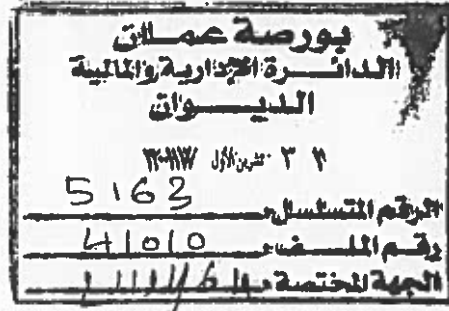 بورصة عمان
الدائرة الإدارية والمالية
الديوان
تشرين الأول
الرقم المتسلسل 5163
رقم الملف 41010
الجهة المختصة